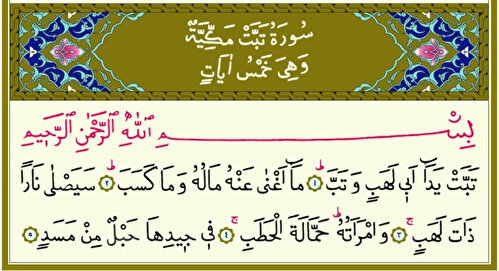 سُورَةُ تَبَّتْ مَكِّيَّةٌ
وَهِىَ خَمْسُ اٰيَاتٍ
بِسْمِ اللّٰهِ الرَّحْمٰنِ الرَّحِيمِ
تَبَّتْ يَدَٓا اَبٖى لَهَبٍ وَتَبَّ ؕ ﴿١﴾ مَٓا اَغْنٰى عَنْهُ مَالُهُ وَمَا كَسَبَ ؕ ﴿٢﴾ سَيَصْلٰى نَارًا
ذَاتَ لَهَبٍ ۚ ﴿٣﴾ وَامْرَاَتُهُ ؕ حَمَّالَةَ الْحَطَبِ ۚ ﴿٤﴾ فٖى جٖيدِهَا حَبْلٌ مِنْ مَسَدٍ ﴿٥﴾